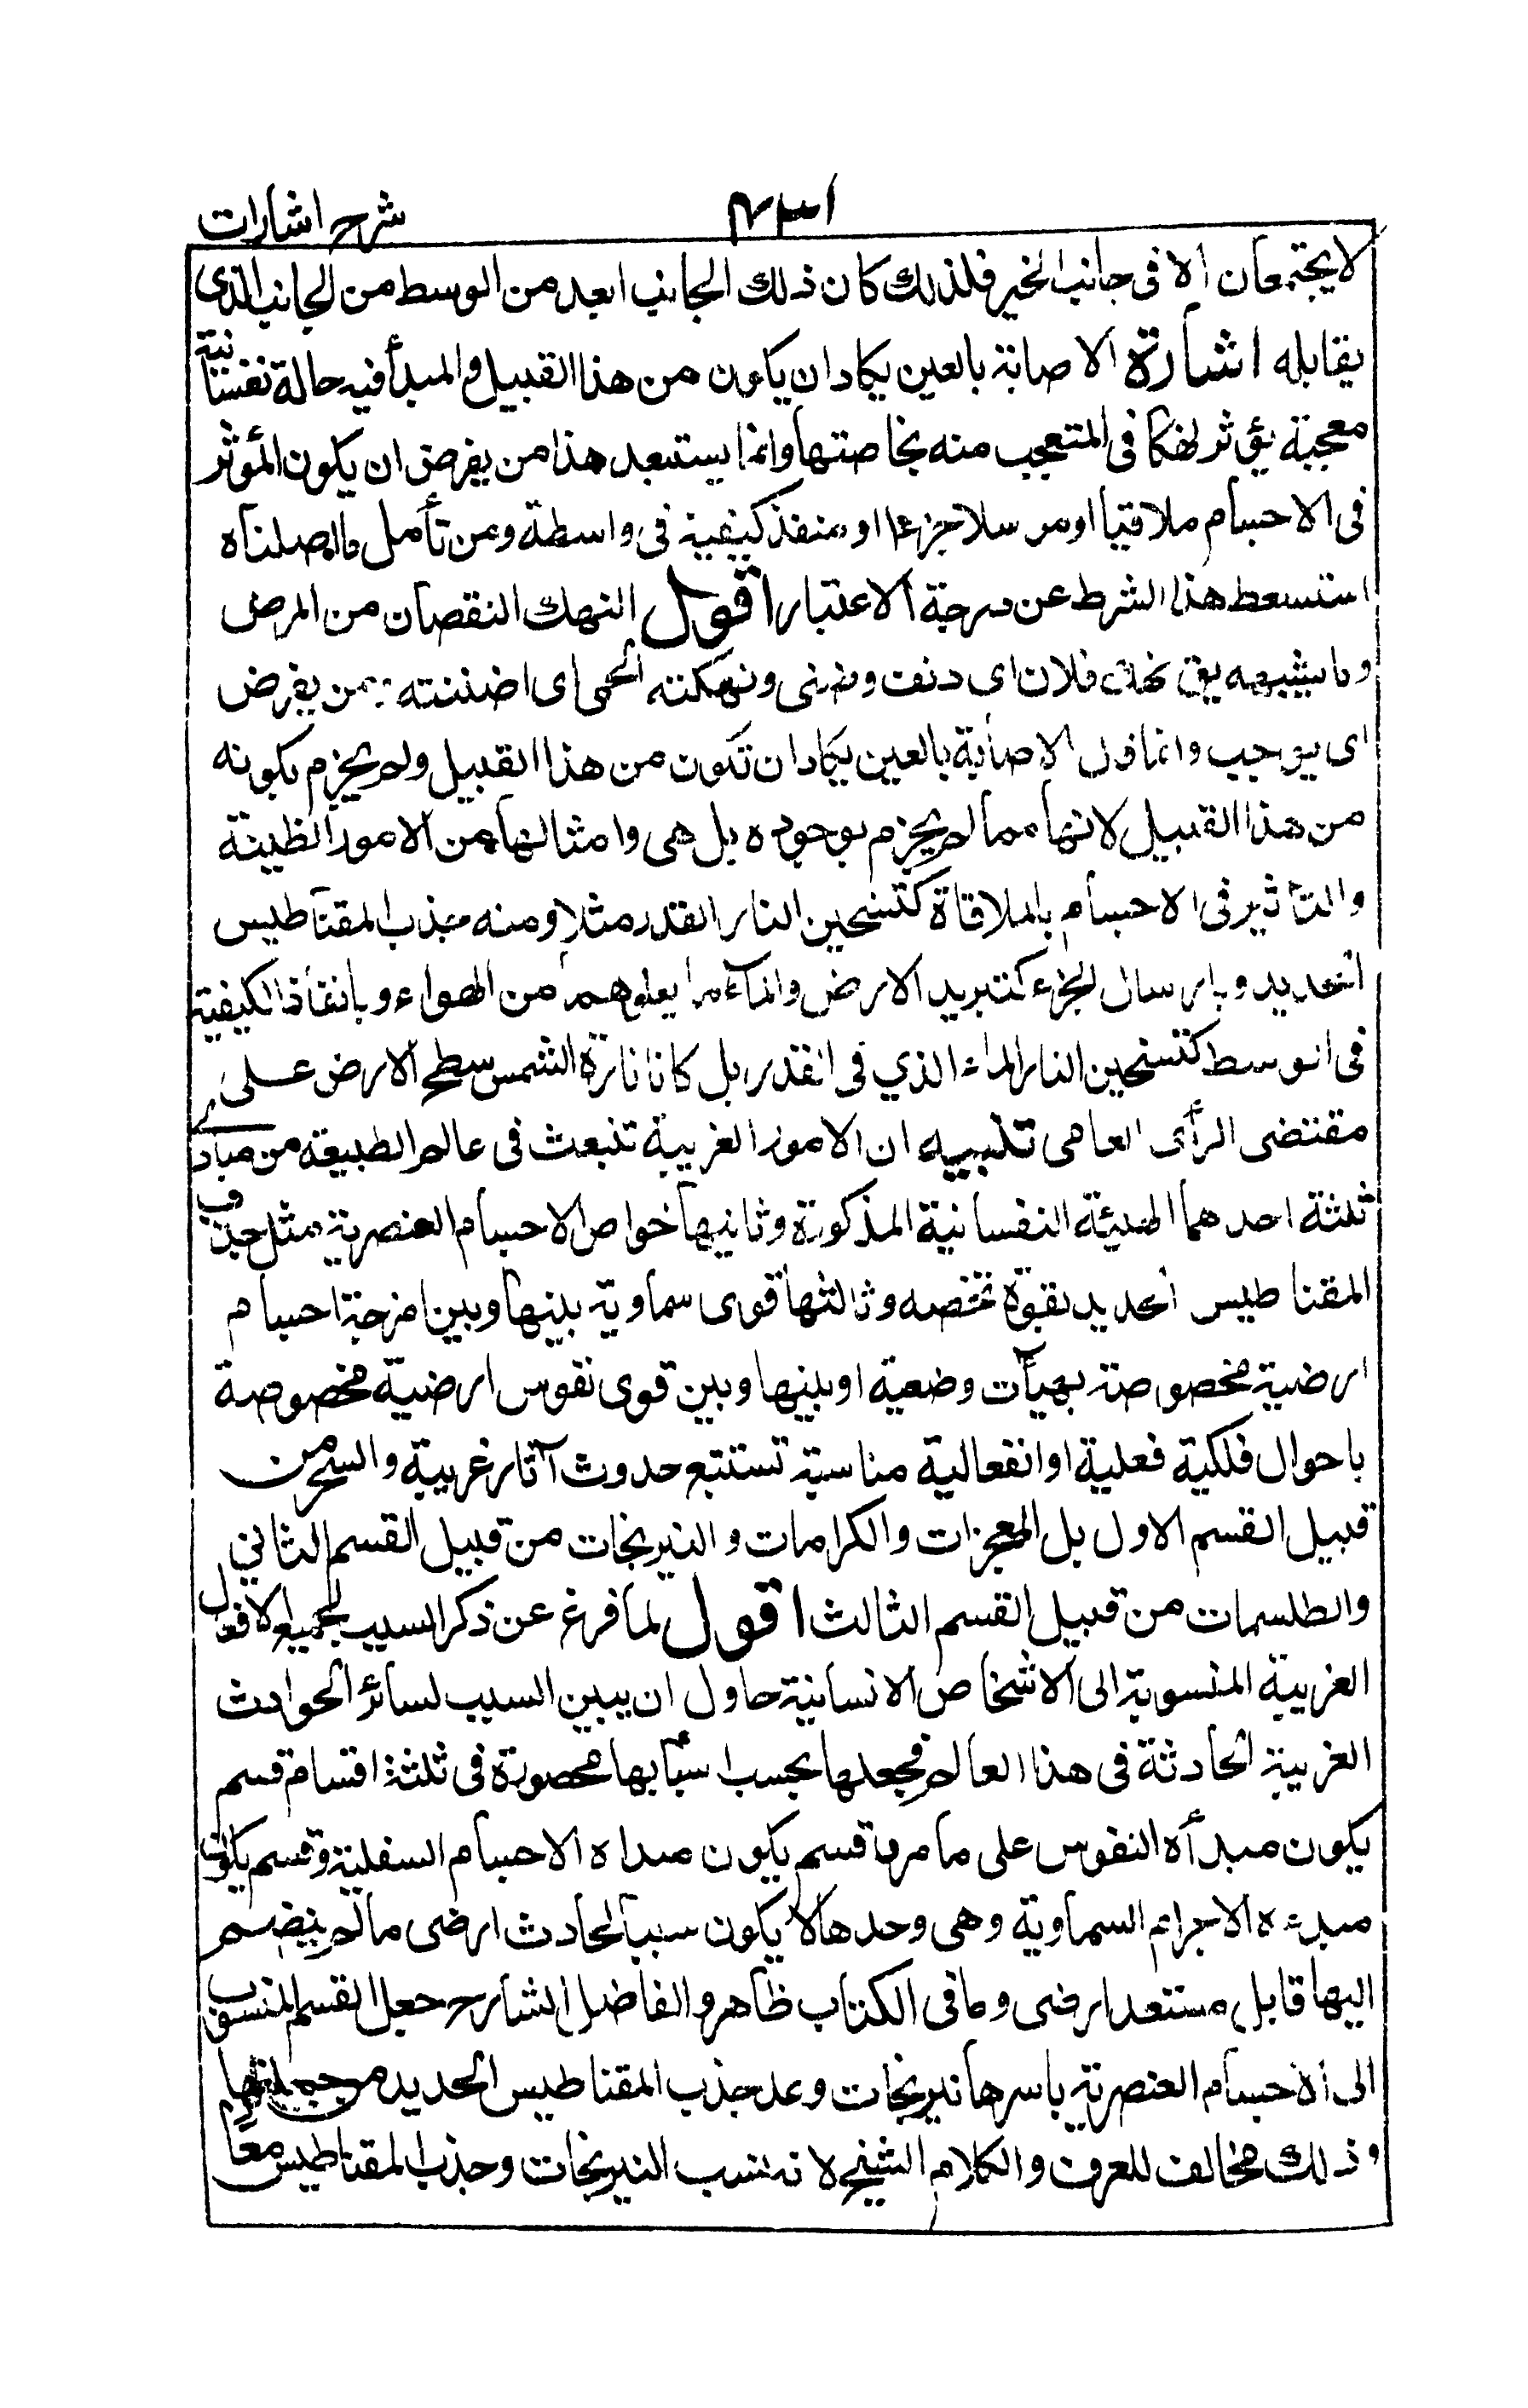 شرح اشارات
لا يجتمعان الا فى جانب الخير فلذلك كان ذلك الجانب ابعد من الوسط من الجانب الذى
يقابله اشارة الاصابة بالعين يكاد ان يكون من هذا القبيل والمبدأ فيه حالة نفسانية
معجبة يؤثر نهكا فى المتعجب منه بخاصتها وانما يستبعد هذا من يفرض ان يكون المؤثر
فى الاجسام ملاقيا او مرسلا جزءا او منفذ كيفية فى واسطة ومن تأمل ما اصلناه
استسقط هذا الشرط عن درجة الاعتبار اقول النهك النقصان من المرض
وما يشبهه يق نهك فلان اى دنف وضنى ونهكته الحمى اى اضنته بمن يفرض
اى يوجب وانما قال الاصابة بالعين يكاد ان تكون من هذا القبيل ولم يجزم بكونه
من هذا القبيل لانها مما لم يجزم بوجوده بل هى وامثالها من الامور الظنية
والتأثير فى الاجسام بالملاقاة كتسخين النار القدر مثلا ومنه جذب المقناطيس
الحديد وبارسال الجزء كتبريد الارض والماء ما يعلوهما من الهواء وبانفاذ الكيفية
فى الوسط كتسخين النار الماء الذي فى القدر بل كانارة الشمس سطح الارض على
مقتضى الرأى العامى تنبيه ان الامور الغريبة تنبعث فى عالم الطبيعة من مبادى
ثلثة احدهما الهيئة النفسانية المذكورة وثانيها خواص الاجسام العنصرية مثل جذب
المقناطيس الحديد بقوة تخصه وثالثها قوى سماوية بينها وبين امزجة اجسام
ارضية مخصوصة بهيآت وضعية او بينها وبين قوى نفوس ارضية مخصوصة
باحوال فلكية فعلية او انفعالية مناسبة تستتبع حدوث آثار غريبة والسحر من
قبيل القسم الاول بل المعجزات والكرامات والنيرنجات من قبيل القسم الثاني
والطلسمات من قبيل القسم الثالث اقول لما فرغ عن ذكر السبب لجميع الافعال
الغريبة المنسوبة الى الاشخاص الانسانية حاول ان يبين السبب لسائر الحوادث
الغريبة الحادثة فى هذا العالم فجعلها بحسب اسبابها محصورة فى ثلثة اقسام قسم
يكون مبدأه النفوس على ما مر وقسم يكون مبداه الاجسام السفلية وقسم يكون
مبدءه الاجرام السماوية وهى وحدها لا يكون سببا لحادث ارضى ما لم ينضم
اليها قابل مستعد ارضى وما فى الكتاب ظاهر والفاضل الشارح جعل القسم المنسوب
الى الاجسام العنصرية باسرها نيرنجات وعد جذب المقناطيس الحديد من جملتها
وذلك مخالف للعرف والكلام الشيخ لانه نسب النيرنجات وجذب المقناطيس معا